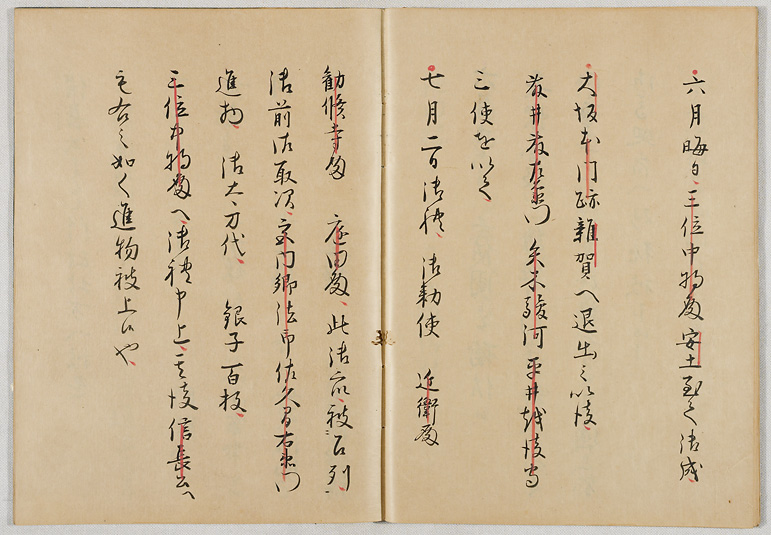 六月晦日、三位中将殿安土至て御成、
大坂本門跡雜賀へ退出之以後、
藤井藤左衛門 矢木駿河 平井越後守
三使を以て、
七月二日御禮、御勅使 近衛殿
勧修寺殿 庭田殿、此御衆、被召列、
御前御取次、宮内卿法印佐久間右衛門
進物、御太刀代、銀子百枚、
三位中将殿へ御禮申上、其後信長公へ
も右之如く進物被上候也、